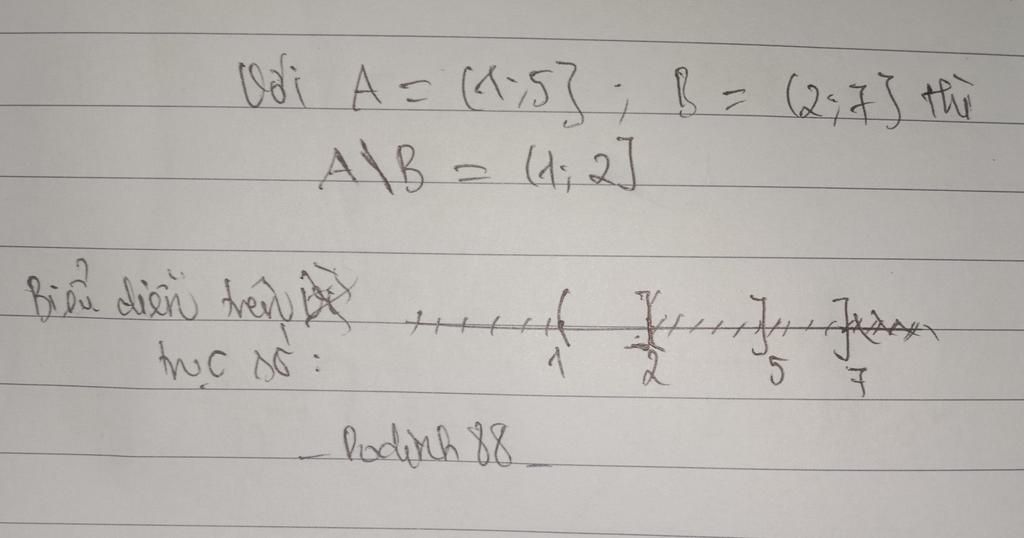 Với A = (1;5] ; B = (2;7] thì
A\B = (1; 2]
Biểu diễn trên
1 2 5 7
trục số :
- Dodinh 88 -